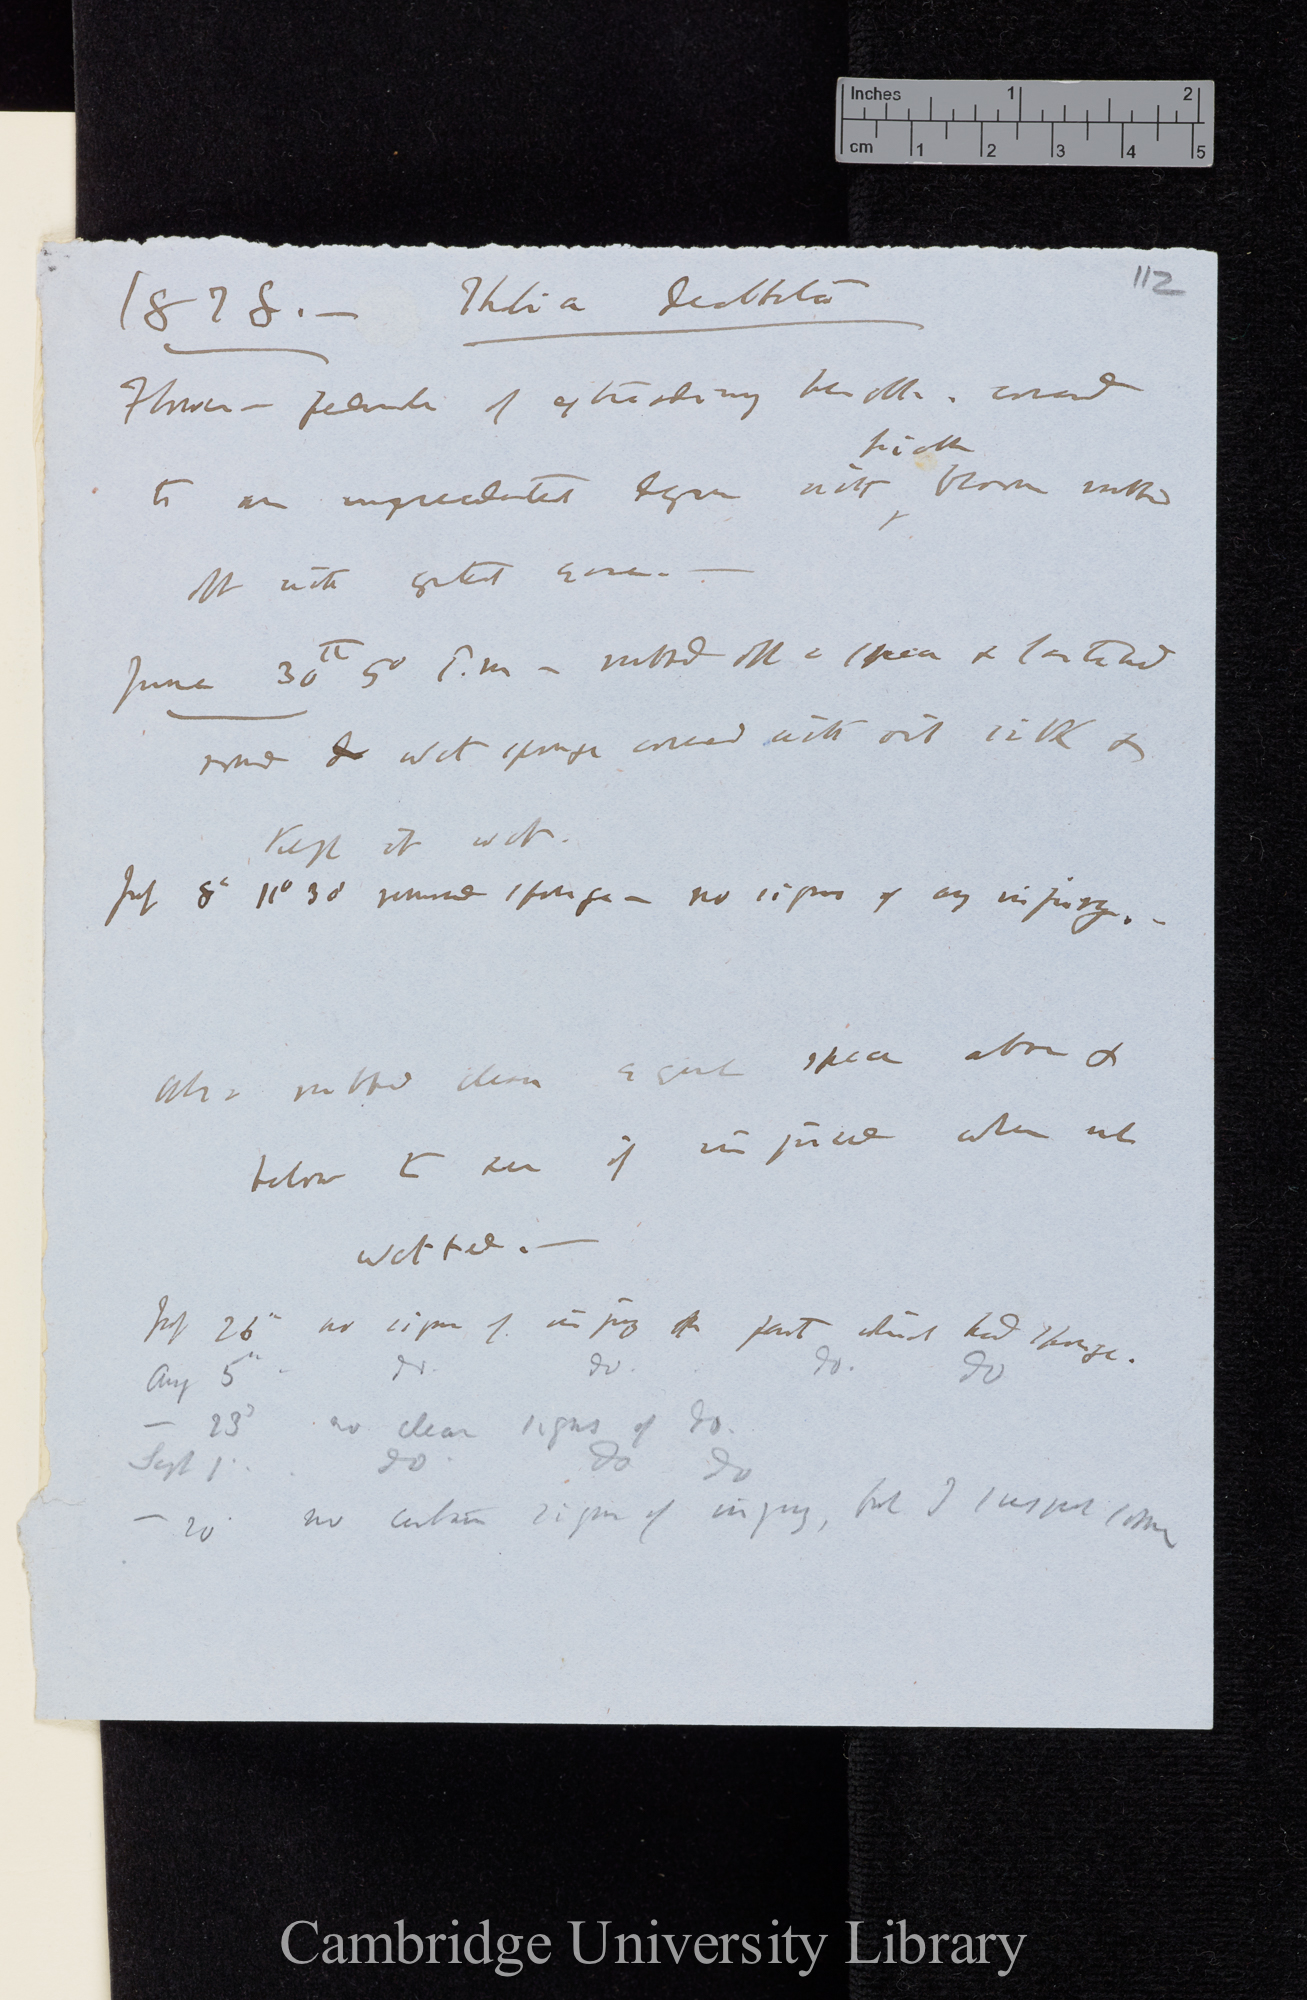 Inches 1 2
cm 1 2 3 4 5
112
1878. — Thalia dealbata
Flower — peduncle of extraordinary covered
thick
to an unprecedented degree with bloom rubbed
off with greatest ease. —
June 30th 5° P.m — rubbed off a space & fastened
round & wet sponge covered with oil silk &
kept it wet.
July 8th 11° 30' removed sponge — no signs of any injury. —
Also rubbed clean a great space above &
below to see if injured when not
wetted. —
July 26th no signs of injury on part which had sponge.
Aug 5th. do. do. do. do
— 23d no clear signs of do.
Sept 1. do. do do
— 20 no certain signs of injury, but I suspect some
Cambridge University Library